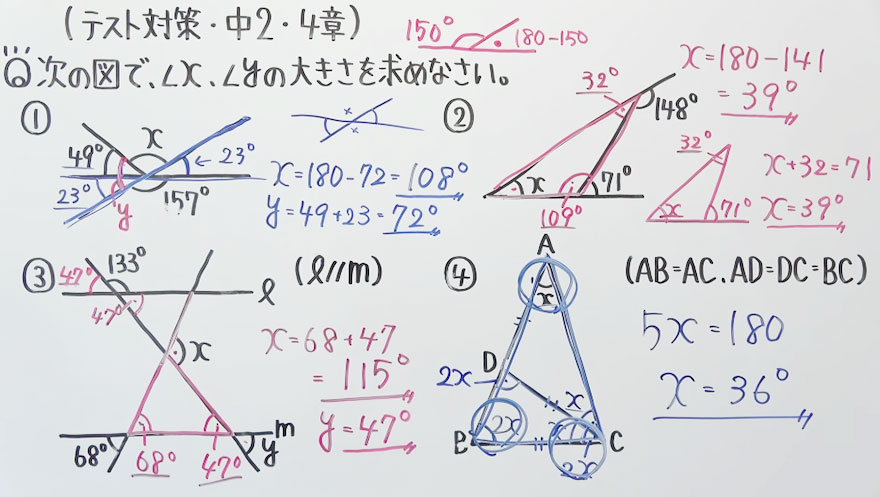 (テスト対策・中2・4章)
150° 180-150
Q 次の図で、∠x、∠yの大きさを求めなさい。
①
49° x 23°
23° y 157°
x x
x=180-72=108°
y=49+23=72°
②
32° 148°
x 109° 71°
x=180-141
=39°
32°
x 71°
x+32=71
x=39°
③ (l//m)
47° 133° l
47°
x
68° 68° 47° y m
x=68+47
=115°
y=47°
④ (AB=AC、AD=DC=BC)
A
x
D
2x x
B 2x x C
2x
5x=180
x=36°